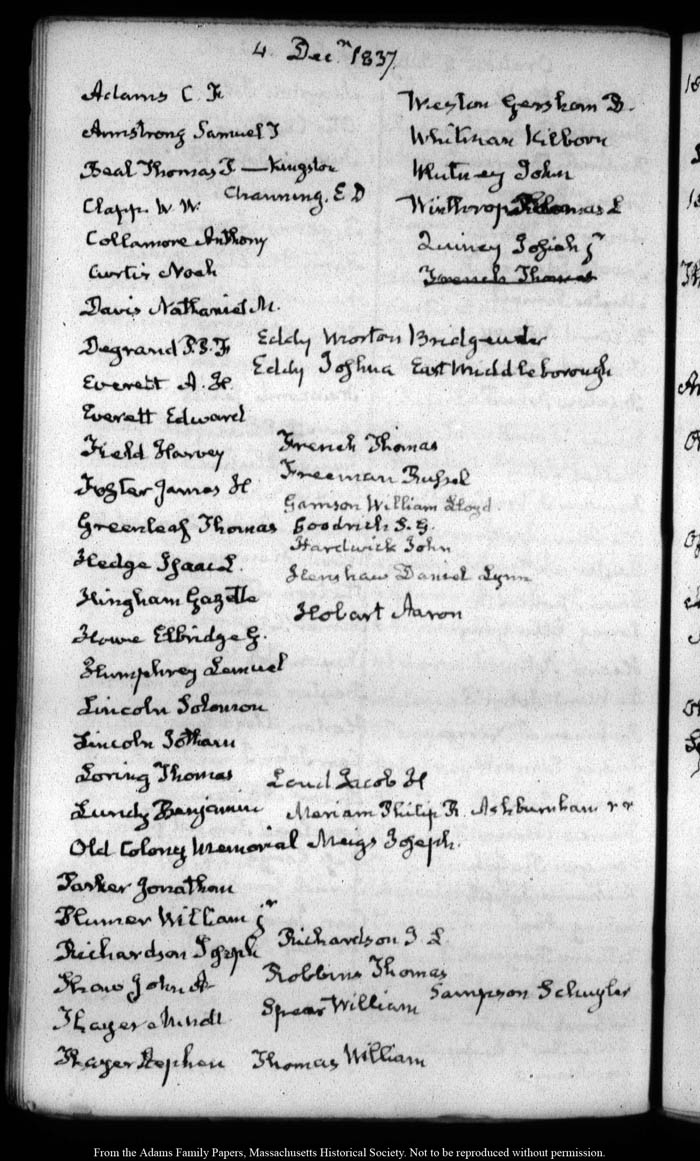 4 Decr 1837
Adams C. F.
Armstrong Samuel T
Beal Thomas J — Kingston
Clapp. W. W. Channing. E D
Collamore Anthony
Curtis Noah
Davis Nathaniel M.
Degrand P. P. F. Eddy Morton Bridgewater
Everett A. H. Eddy Joshua East Middleborough
Everett Edward
Field Harvey French Thomas
Foster James H Freeman Russel
Garrison William Lloyd
Greenleaf Thomas Goodrich S. G.
Hardwick John
Hedge Isaac L. Henshaw Daniel Lynn
Hingham Gazette Hobart Aaron
Howe Elbridge G.
Humphrey Lemuel
Lincoln Solomon
Lincoln Jotham
Loring Thomas Loud Jacob H
Lundy Benjamin Meriam Philip R. Ashburnham
Old Colony Memorial Meigs Joseph.
Parker Jonathan
Plumer William Jr
Richardson Joseph Richardson J. L.
Shaw John A Robbins Thomas
Thayer Spear William Sampson Schuyler
Thayer Stephen Thomas William
Weston Gersham B.
Whitman Kilborn
Whitney John
Winthrop Thomas L
Quincy Josiah Jr
French Thomas
From the Adams Family Papers, Massachusetts Historical Society. Not to be reproduced without permission.